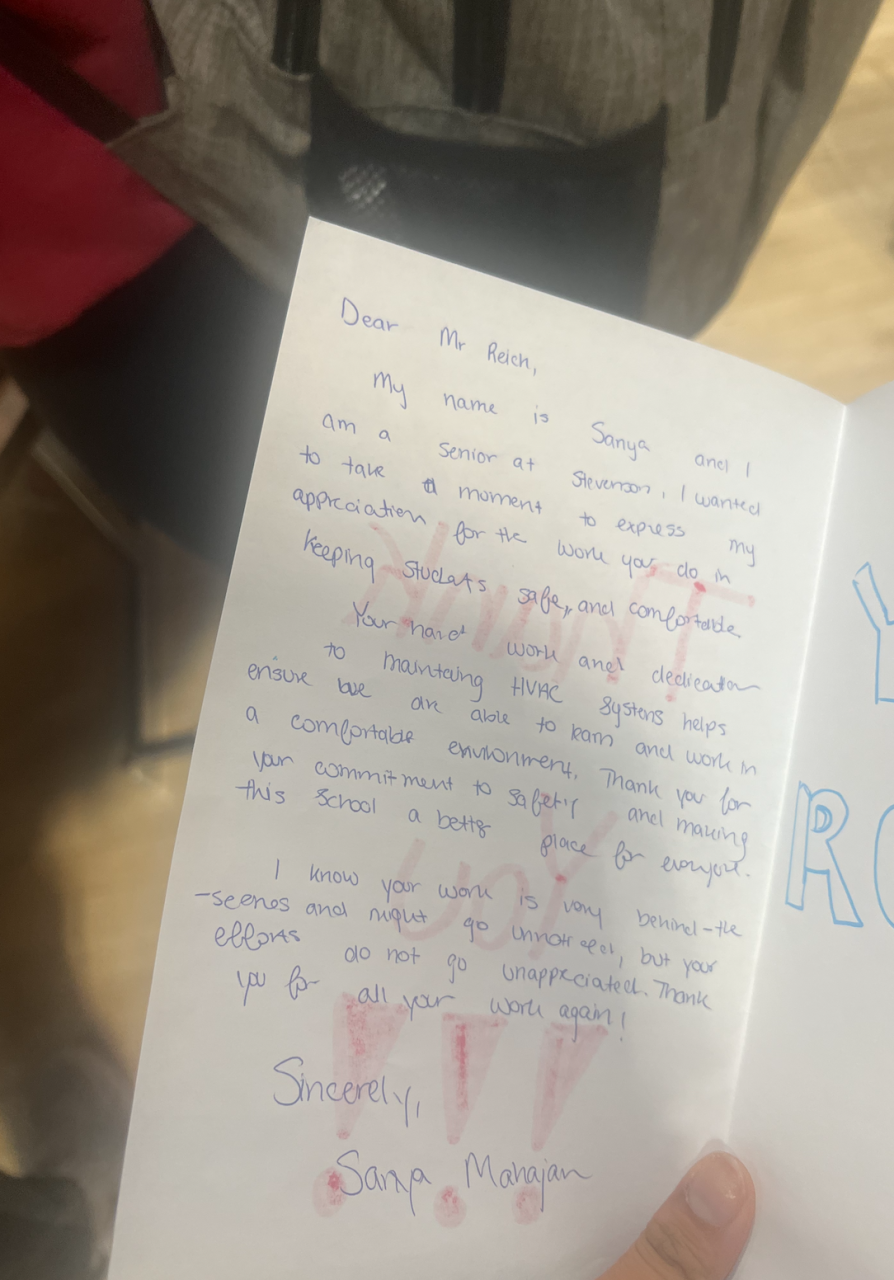 Dear Mr Reich,
My name is Sanya and I
am a senior at Stevenson, I wanted
to take a moment to express my
appreciation for the work you do in
keeping students safe, and comfortable.
Your hard work and dedication
to maintaing HVAC systems helps
ensure we are able to learn and work in
a comfortable environment. Thank you for
your commitment to safety and making
this school a better place for everyone.
I know your work is very behind-the
-scenes and might go unnoticed, but your
efforts do not go unappreciated. Thank
you for all your work again!
Sincerely,
Sanya Mahajan
THANK
YOU
!!!
Y
RO